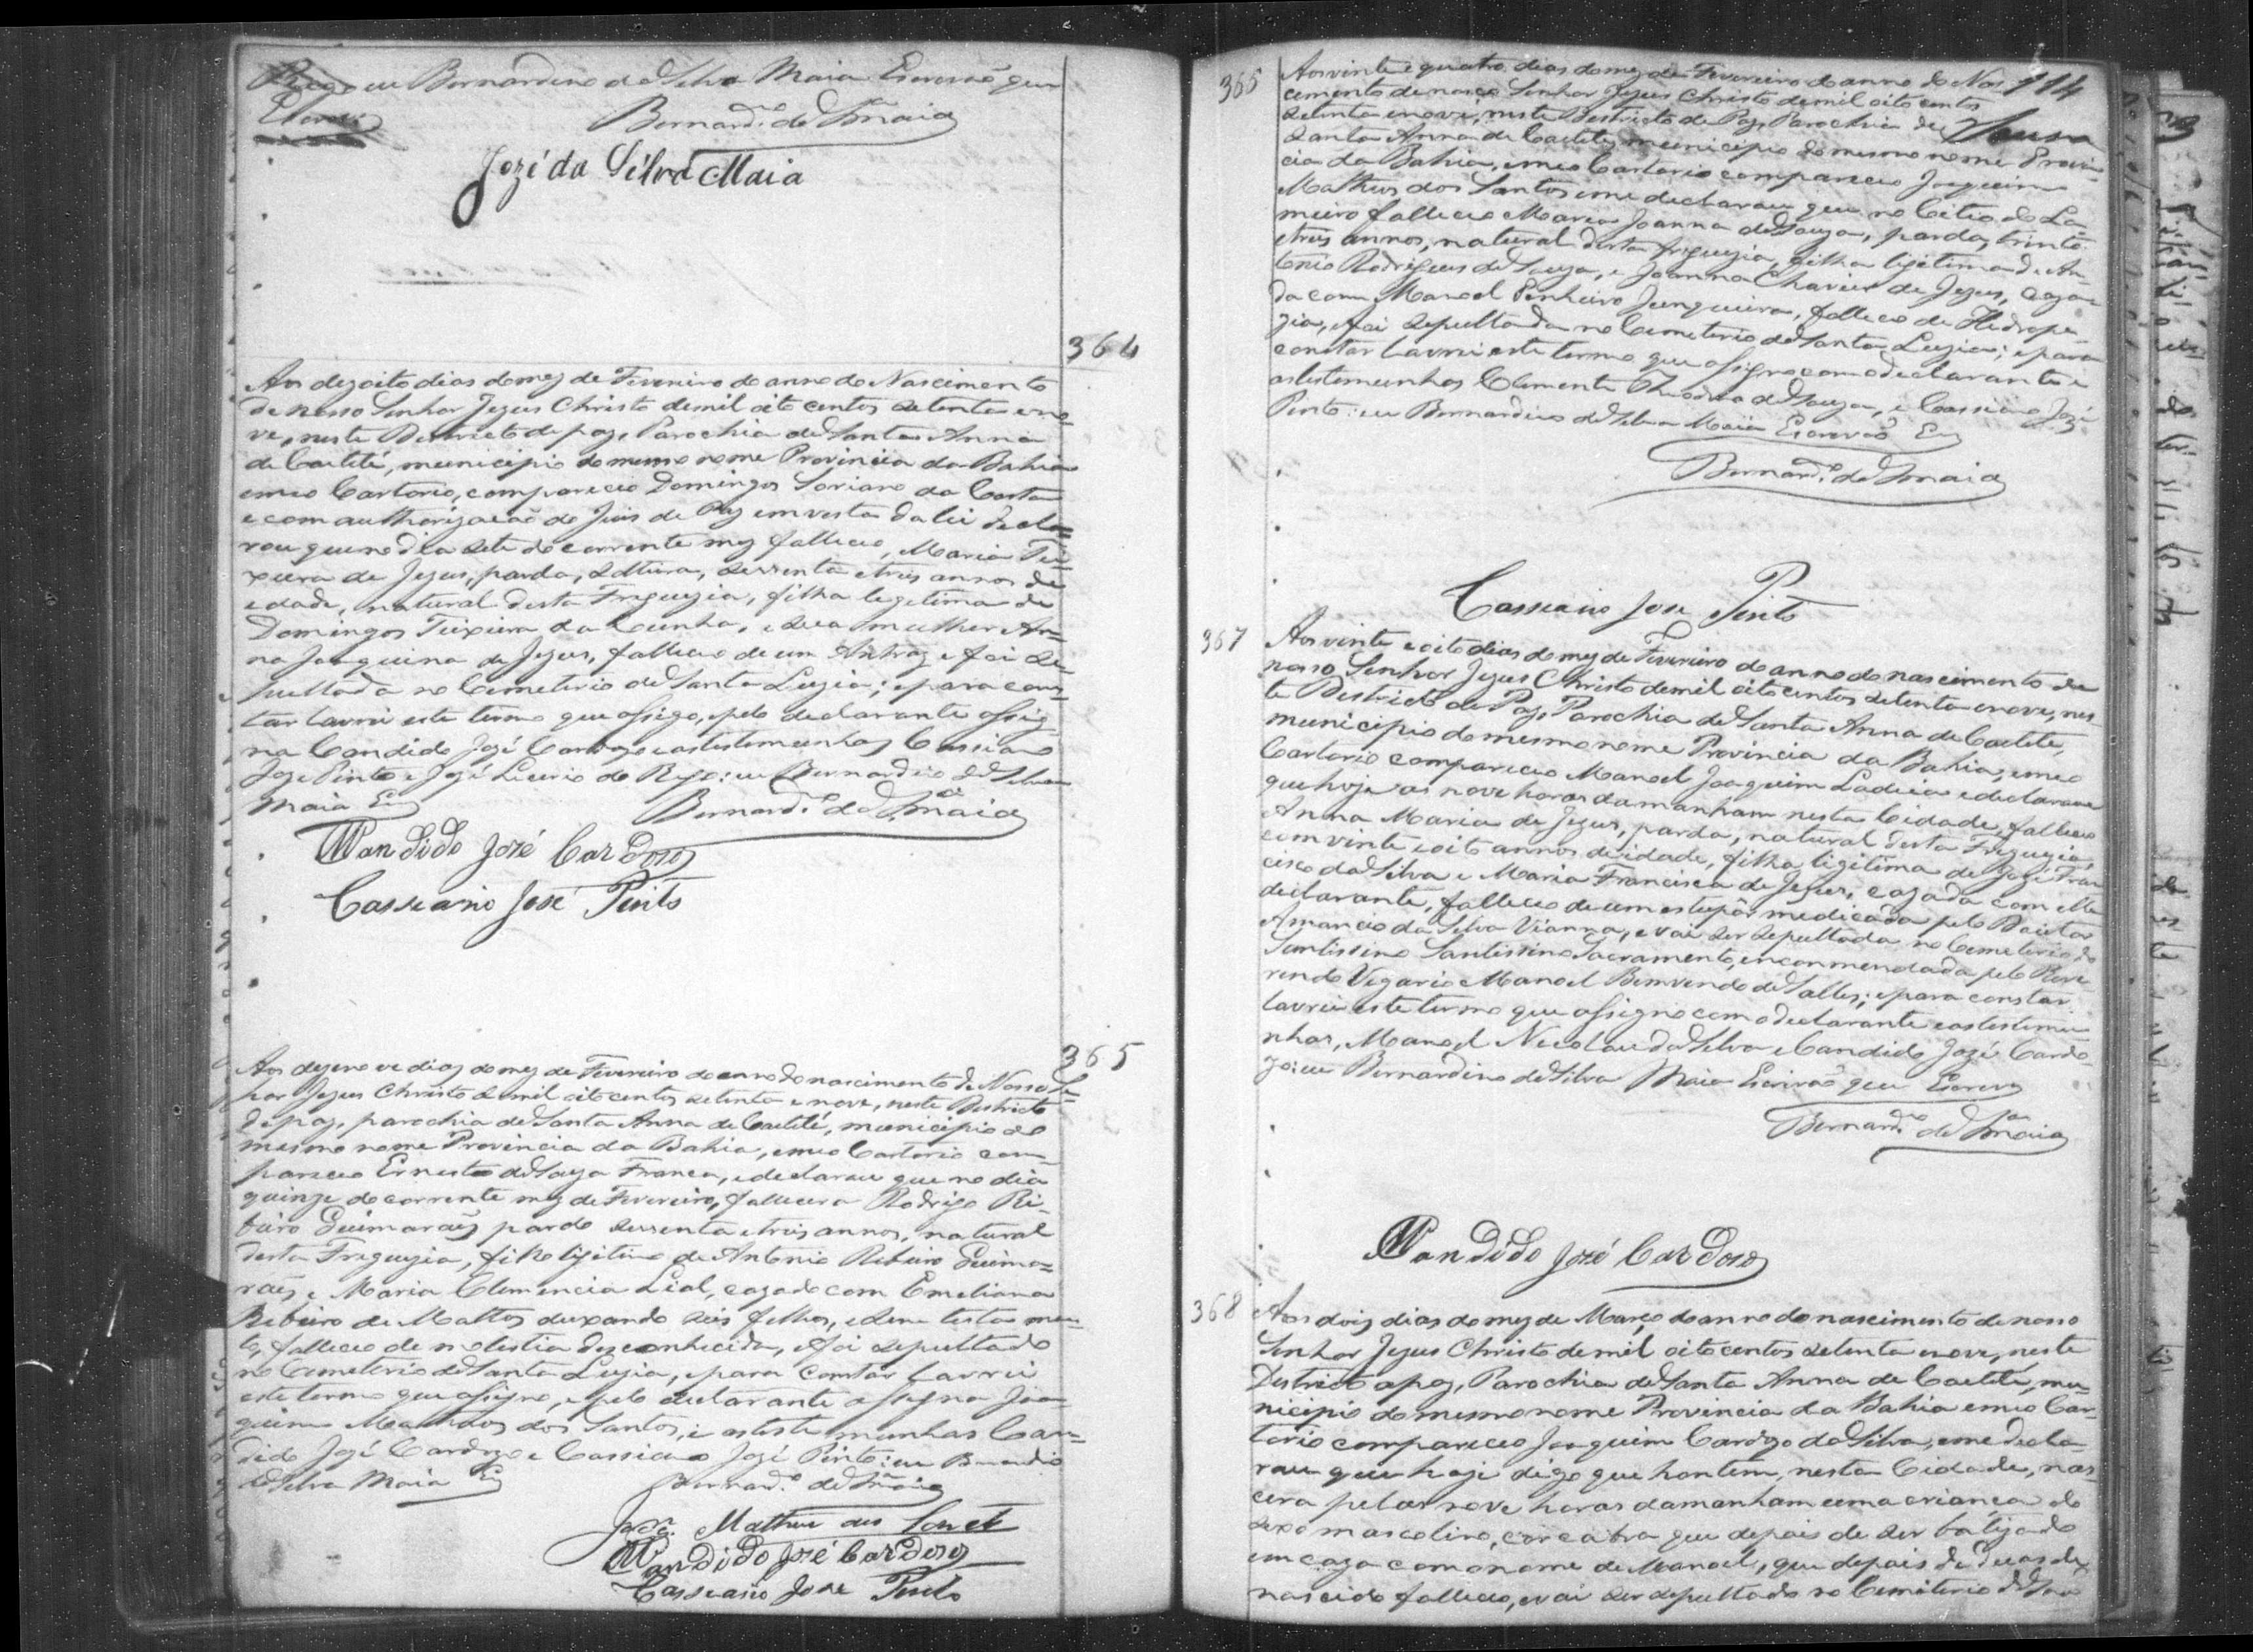 Rego eu Bernardino da Silva Maia Escrevaõ que
Escrevi
Bernard.º da S.ª Maia
Jozé da Silva Maia
364
Aos dezoito dias do mez de Fevereiro do anno do Nascimento
de nosso Senhor Jezus Christo de mil oito centos setenta e no=
ve, neste Destricto de paz, Parochia de Santa Anna
de Caetité, municipio do mesmo nome Provincia da Bahia
em meo Cartorio, compareceo Domingos Soriano da Costa
e com authorizacaõ do Juis de Paz em vesta da lei decla=
rou que no dia sete do corrente mez falleceo, Maria Tei=
xeira de Jezus, parda, solteira, secenta e tres annos de
edade, natural desta Freguezia, filha legitima de
Domingos Teixeira da Cunha, e sua mulher An=
na Joaquina de Jezus, falleceo de um Antraz e foi se=
pultada no Cemeterio de Santa Luzia; e para cons=
tar lavrei este termo que assigno, e pelo declarante assig=
na Candido Jozé Cardozo e as testemunhas Cassiano
Joze Pinto e Jozé Licerio do Rego: eu Bernardino da Silva
Maia E
Bernard.º da S.ª Maia
Candido José Cardoso
Casseano José Pinto
365
Aos dezenove dias do mez de Fevereiro do anno do nascimento de Nosso Se=
nhor Jezus Christo de mil oito centos setenta e nove, neste Destricto
de paz, parochia de Santa Anna de Caetité, municipio do
mesmo nome Provincia da Bahia, em meo Cartorio com=
pareceo Ernesto de Souza Franca, e declarou que no dia
quinze do corrente mez de Fevereiro, fallecera Rodrigo Ri=
beiro Guimarães pardo sessenta e tres annos, natural
desta Freguezia, filho legitimo de Antonio Ribeiro Guima=
raẽs, e Maria Clemencia Leal, cazado com Emeliana
Ribeiro de Mattos deixando seis filhos, e sem testamen=
to, falleceo de molestia desconhecida, e foi sepultado
no Cemeterio de Santa Luzia, e para constar lavrei
este termo que assigno, e pelo declarante assigna Joa=
quim Matheos dos Santos, e as testemunhas Can=
dido Jozé Cardozo e Cassiano Jozé Pinto: eu Bernardino
da Silva Maia E
Bernard.º da S.ª Maia
Joaq.m Matheus dos Santos
Candido José Cardoso
Casseano Jose Pinto
114
365
Aos vinte e quatro dias do mez de Fevereiro do anno do Nas
cemento de nosso Senhor Jezus Christo de mil oito centos
setenta e nove, neste Destricto de Paz, Parochia de
Santa Anna de Caetité, municipio do mesmo nome Provin=
cia da Bahia, em meo Cartorio compareceo Joaquim
Matheus dos Santos e me declarou que no Citio do La=
meiro falleceo Maria Joanna de Souza, parda, trinta
e tres annos, natural desta freguezia, filha legitima de An=
tonio Rodrigues de Souza, e Joanna Chavier de Jezus, caza=
da com Manoel Pinheiro Junqueira, falleceo de Hedrope=
zia, e foi sepultada no Cemeterio de Santa Luzia; e para
constar lavrei este termo que assigno com o declarante e
as testemunhas Clemente Theodoro de Souza, e Cassiano Jozé
Pinto: eu Bernardino da Silva Maia Escrevaõ E
Bernard.º da S.ª Maia
Casseano Jose Pinto
367
Aos vinte e oito dias do mez de Fevereiro do anno do nascimento de
nosso Senhor Jezus Christo de mil oito centos setenta e nove, nes=
te Destricto de Paz, Parochia de Santa Anna de Caetité,
municipio do mesmo nome Provincia da Bahia, em meo
Cartorio compareceo Manoel Joaquim Ladeia e declarou
que hoje as nove horas da manham nesta Cidade, falleceo
Anna Maria de Jezus, parda, natural desta Freguezia,
com vinte e oito annos de idade, filha legitima de Jozé Fran
cisco da Silva e Maria Francisca de Jezus, cazada com elle
declarante, falleceo de um estupôr medicada pelo Doutor
Amancio da Silva Vianna, e vai ser sepultada no Cemeterio do
Santissimo Santissimo Sacramento, encommendada pelo Reve
rendo Vigario Manoel Bemvendo de Salles; e para constar
lavrei este termo que assigno com o declarante e as testemu
nhas, Manoel Nicolau da Silva e Candido Jozé Cardo
zo: eu Bernardino da Silva Maia Escrivaõ que Escrevi
Bernard.º da S.ª Maia
Candido José Cardoso
368
Aos dois dias do mez de Março do anno do nascimento de nosso
Senhor Jezus Christo de mil oito centos setenta e nove, neste
Destricto de paz, Parochia de Santa Anna de Caetité, mu=
nicipio do mesmo nome Provincia da Bahia em meo Car=
torio compareceo Joaquim Cardozo da Silva, e me decla=
rou que hoje digo que hontem, nesta Cidade, nas=
cera pelas nove horas da manham uma criança do
sexo mascolino, cor cabra que depois de ser batizado
em caza com o nome de Manoel, que depois de duas de
nascido falleceo, e vai ser sepultado no Cemiterio de San